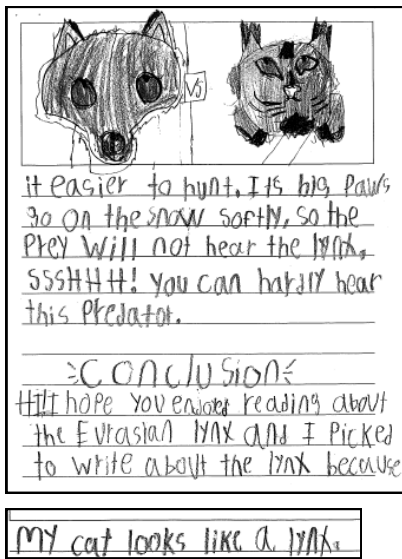 VS
it easier to hunt. Its big Paws
go on the snow softly, so the
Prey will not hear the lynx.
SSSHHH! You can hardly hear
this Predator.
Conclusion
I hope you enjoyed reading about
the Eurasian lynx and I Picked
to write about the lynx because
MY cat looks like a lynx.